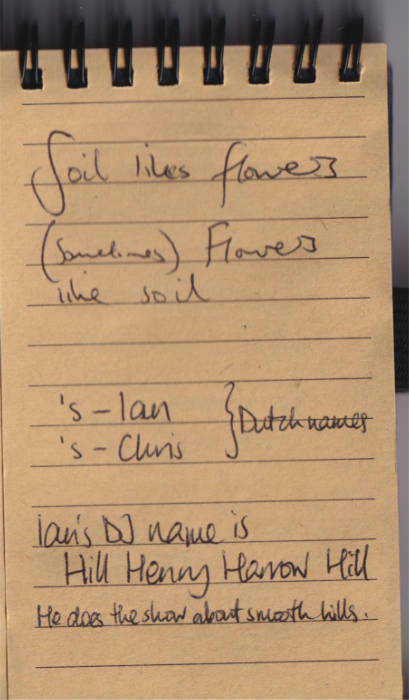 Soil likes flowers
(Sometimes) Flowers
like soil
's - Ian
's - Chris } Dutch names
Ian's DJ name is
Hill Henry Harrow Hill
He does the show about smooth hills.